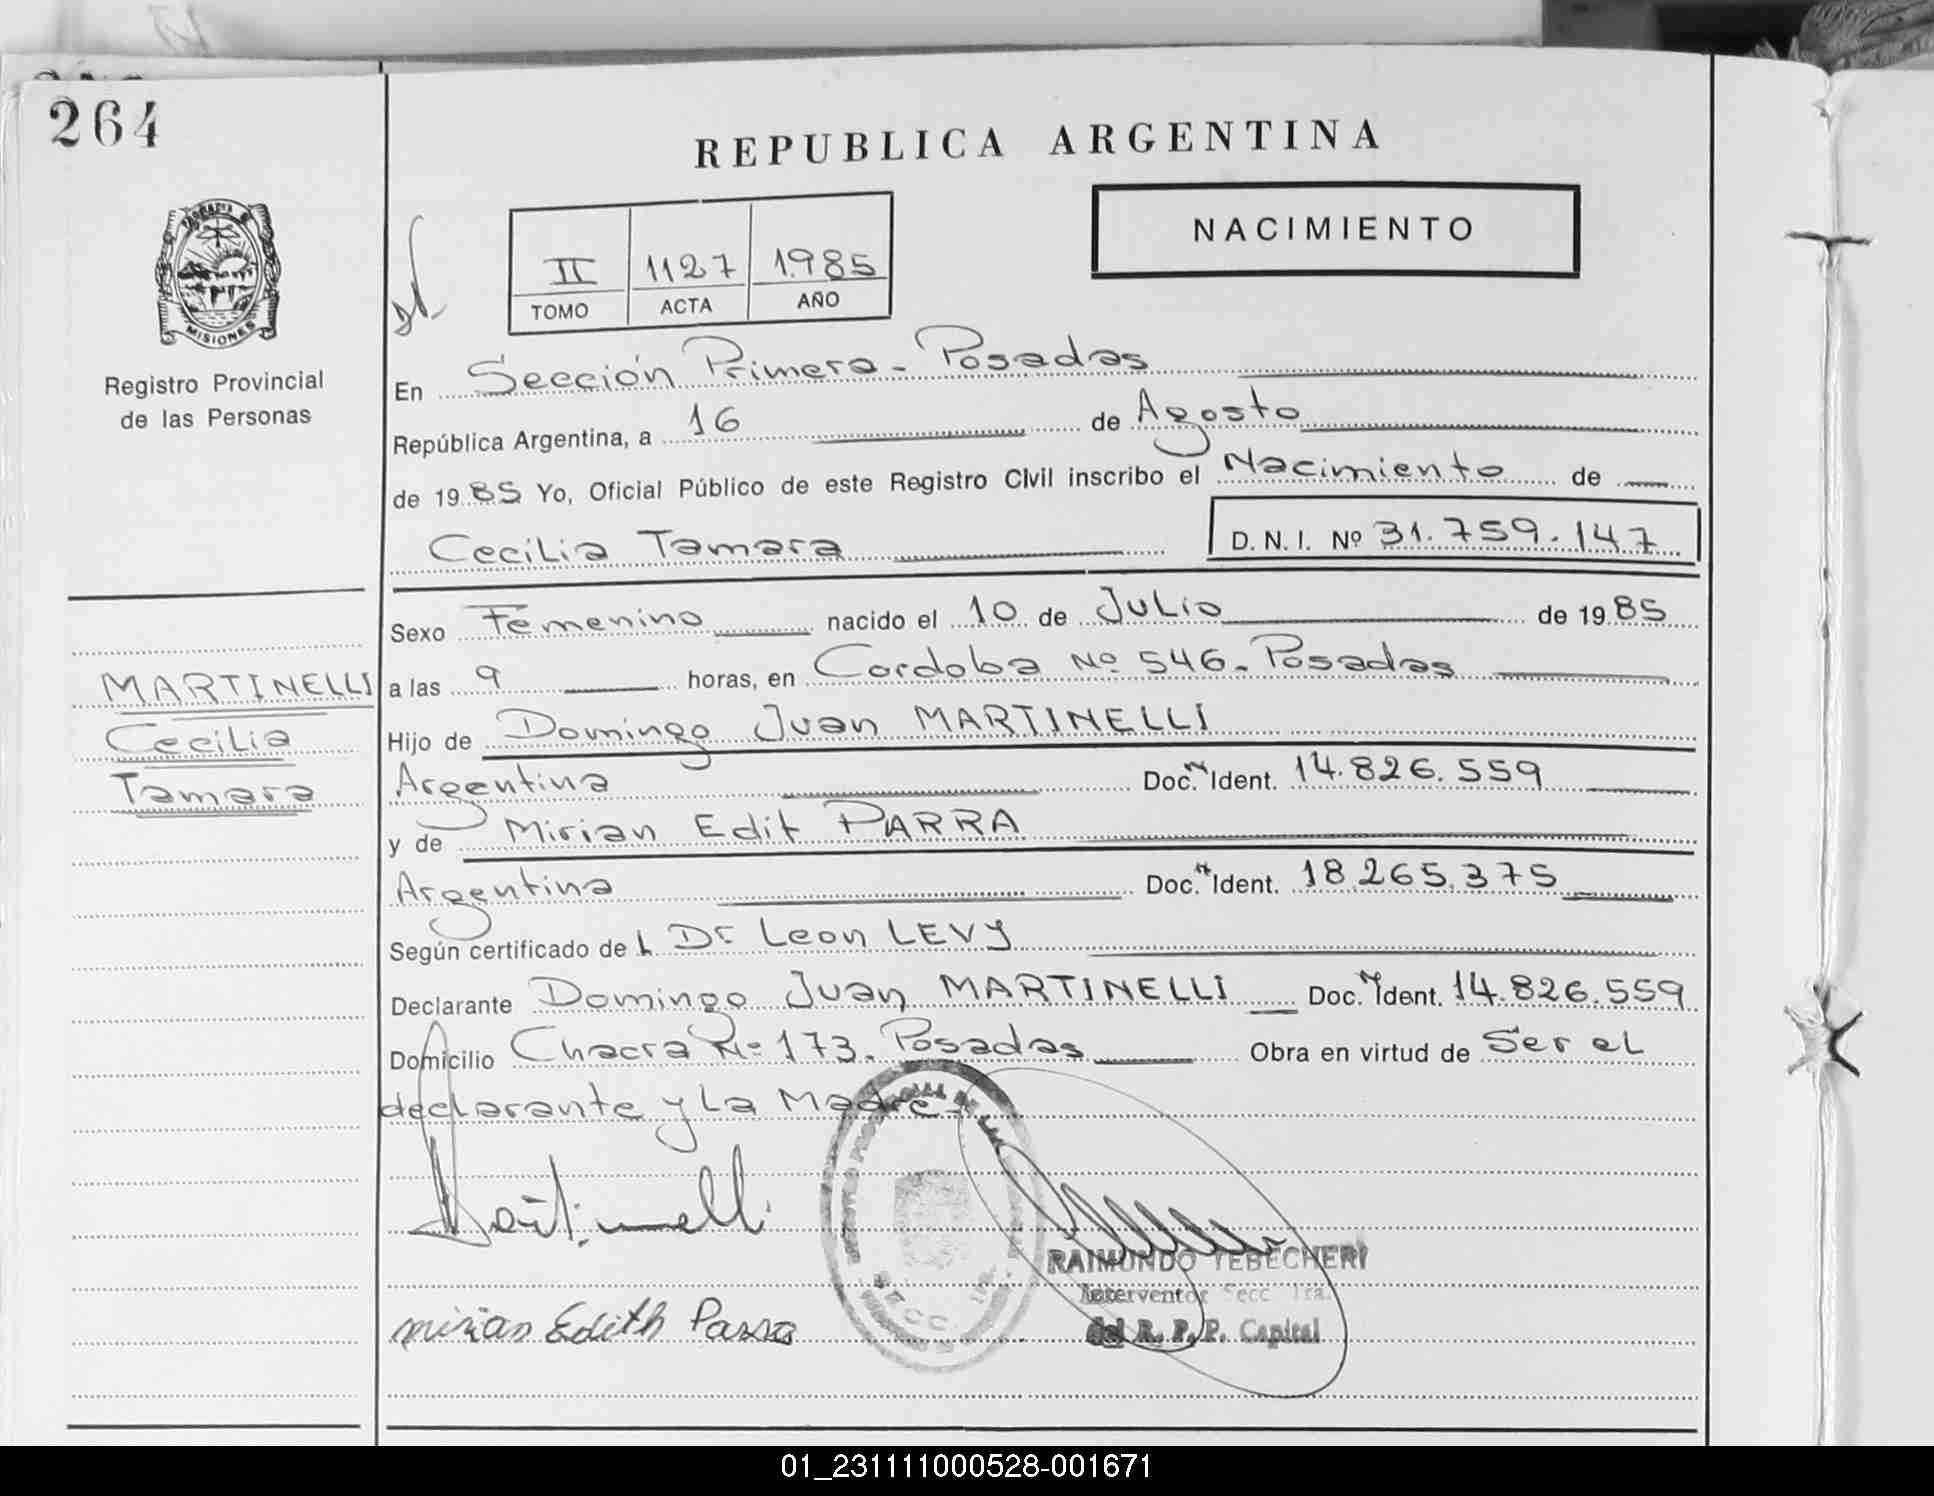 264
REPUBLICA ARGENTINA
NACIMIENTO
II 1127 1.985
TOMO ACTA AÑO
MISIONES
Registro Provincial
de las Personas
En Sección Primera - Posadas
República Argentina, a 16 de Agosto
de 19 85 Yo, Oficial Público de este Registro Civil inscribo el Nacimiento de
Cecilia Tamara D.N.I. Nº 31.759.147
Sexo Femenino nacido el 10 de Julio de 19 85
MARTINELLI
Cecilia
Tamara
a las 9 horas, en Cordoba Nº 546. Posadas
Hijo de Domingo Juan MARTINELLI
Argentina Doc. Ident. 14.826.559
y de Mirian Edit PARRA
Argentina Doc. Ident. 18.265.375
Según certificado de L Dr Leon LEVY
Declarante Domingo Juan MARTINELLI Doc. Ident. 14.826.559
Domicilio Chacra Nº 173. Posadas Obra en virtud de Ser el
declarante y La Madre-
Martinelli
SECC. 1ra.
RAIMUNDO TEBECHERI
Interventor Secc 1ra.
del R. P. P. Capital
mirian Edith Parra
01_231111000528-001671